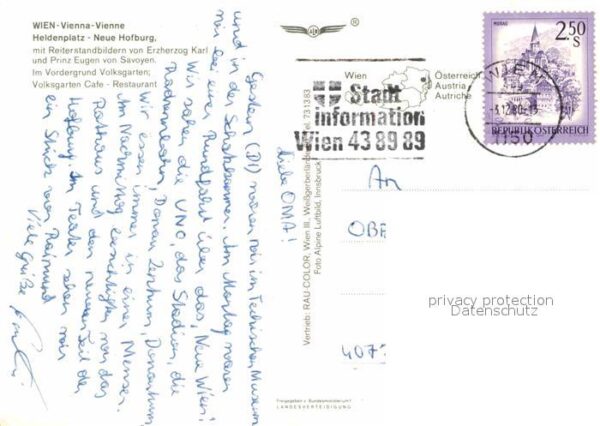 WIEN-Vienna-Vienne
Heldenplatz - Neue Hofburg,
mit Reiterstandbildern von Erzherzog Karl
und Prinz Eugen von Savoyen.
Im Vordergrund Volksgarten;
Volksgarten Cafe - Restaurant
®
Wien
Österreich
Austria
Autriche
Stadt
Information
Wien 43 89 89
WIEN
1150
MURAU
2.50
S
REPUBLIK ÖSTERREICH
Liebe OMA!
Gestern (DI) waren wir im Technischen Museum
und in der Schatzkammer. Am Montag waren
wir bei einer Rundfahrt über das "Neue Wien".
Wir sahen die UNO, das Stadion, die
Donau Zentrum, Donauturm,
Wir essen immer in einer Mensa.
Am Nachmittag besichtigten wir das
Rathaus und den neueren Teil der
Hofburg. Im Teater sehen wir
ein Stück von Raimund
Viele Grüße
Vertrieb: RAU-COLOR, Wien III., Weißgerberlände Tel. 73 13 83
Foto Alpine Luftbild, Innsbruck
An
OBE
407
privacy protection
Datenschutz
Freigegeben v. Bundesministerium f.
LANDESVERTEIDIGUNG